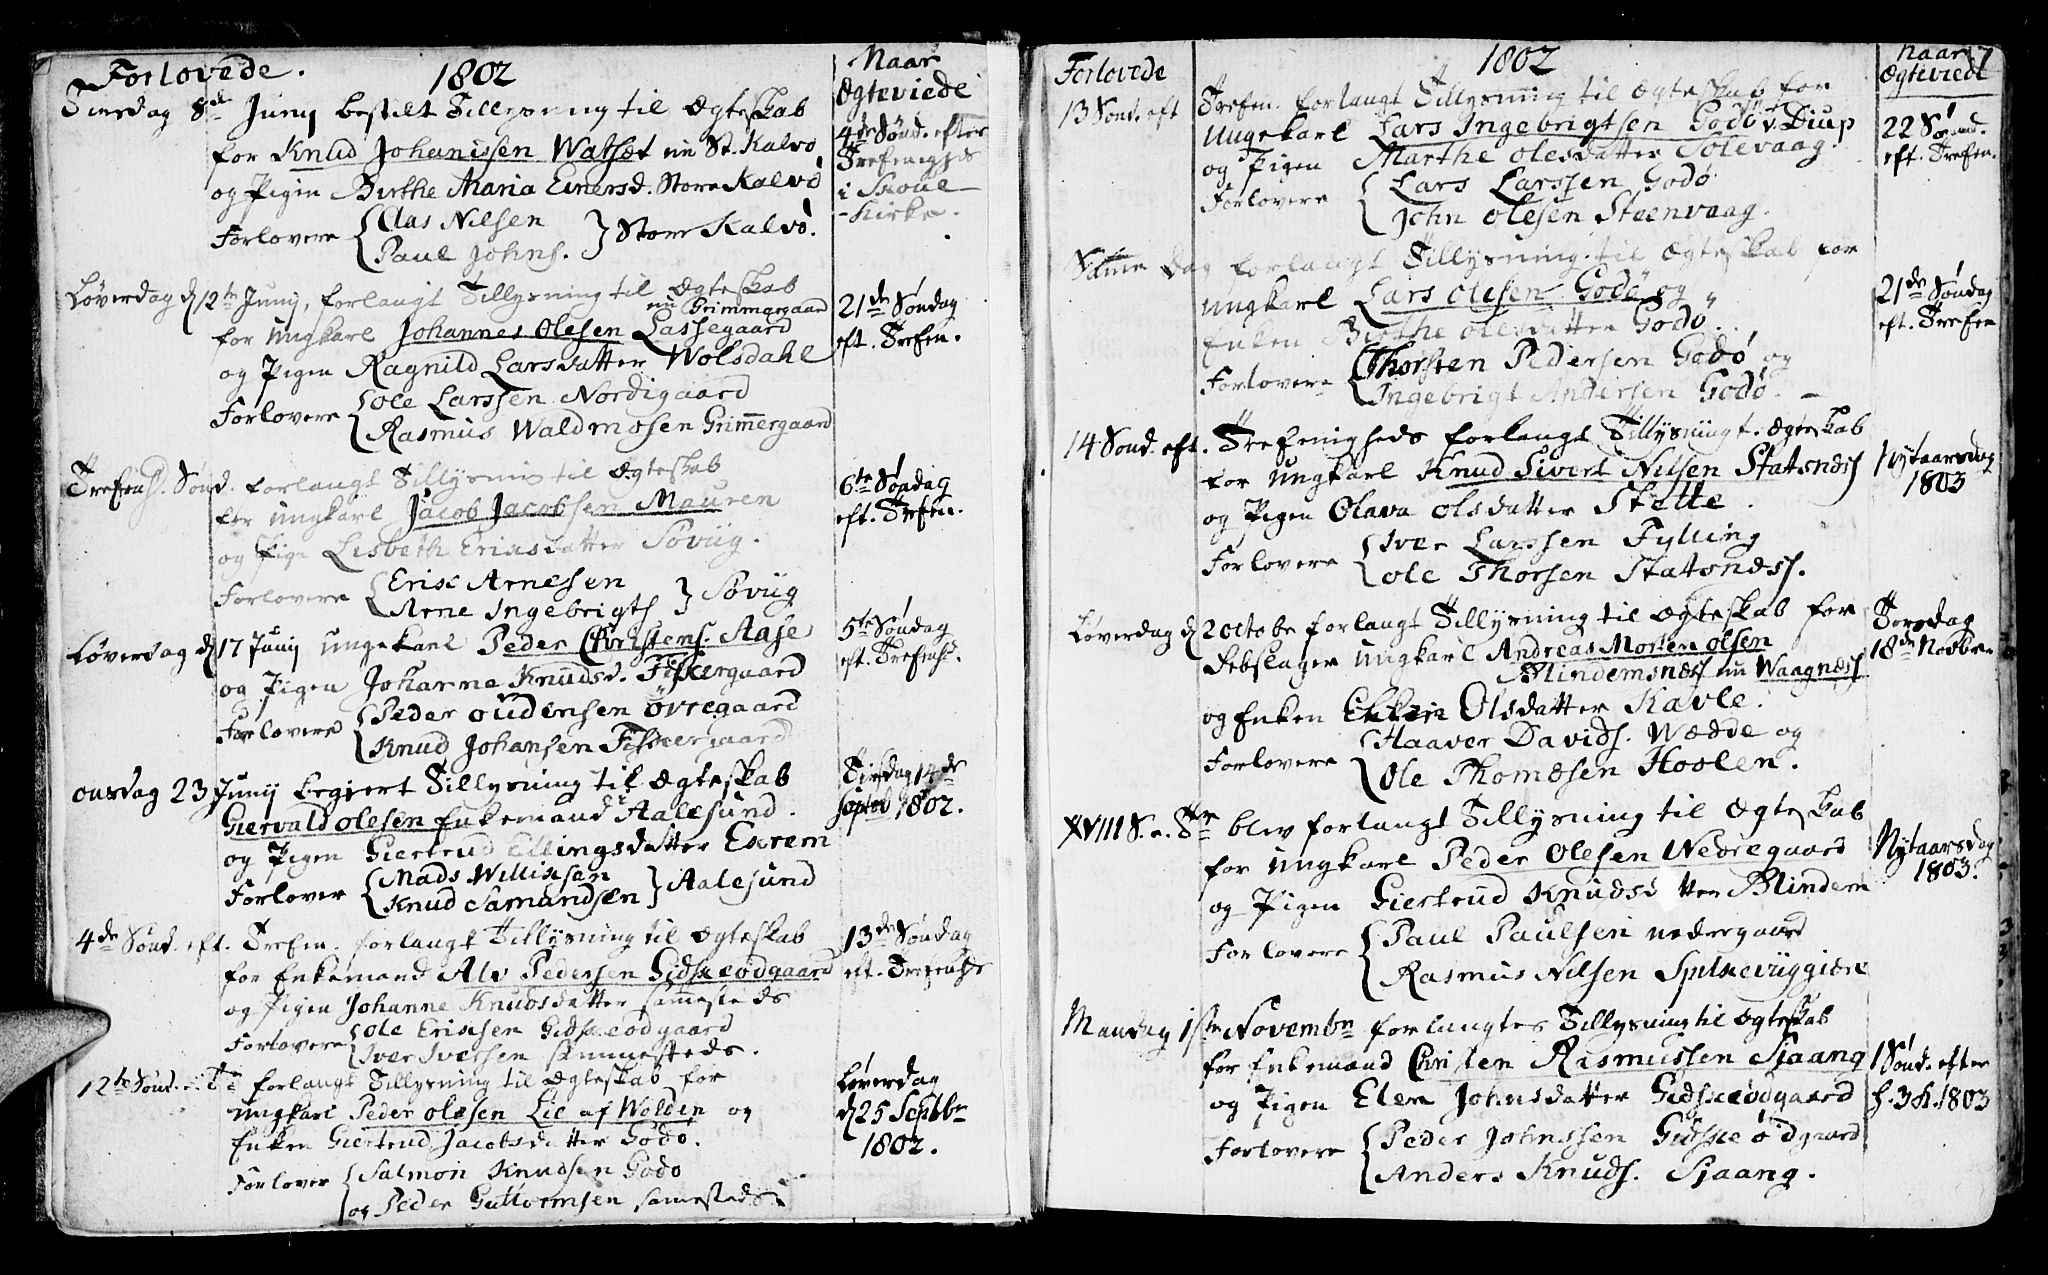 Forlovede. 1802 Naar Ægteviede
Tirsdag 8de Junij bestilt Tillysning til Ægteskab
for Knud Johanissen Watset nu St. Kalvø
og Pigen Birthe Maria Einersd. Store Kalvø
Forlovere Clas Nilsen
Paul Johns. Store Kalvø.
4de Sønd. efter
Trefenigheds
i Skoue
Kirke.
Løverdag d 12te Junij, forlangt Tillysning til Ægteskab
nu Grimmergaard
for Ungkarl Johannes Olesen Lassegaard
og Pigen Ragnild Larsdatter Wolsdahl
Forlovere Ole Larssen Nordigaard
Rasmus Waldmosen Grimmergaard
21de Søndag
eft. Trefen.
Trefensh. Sønd. forlangt Tillysning til Ægteskab
for Ungkarl Jacob Jacobsen Mauren
og Pige Lisbeth Erixsdatter Søvüg.
Forlovere Erix Arnesen
Arne Ingebrigts Søvüg
6te Søndag
eft. Trefen.
Løverdag d 17 Junij Ungekarl Peder Christens. Aase
og Pigen Johanna Knudsd. Fiskergaard
Forlovere Peder Oudensen Øvregaard
Knud Johansen Fiskergaard
5te Søndag
eft. Trefensh.
Onsdag 23 Junij begjert Tillysning til Ægteskab
Giervald Olesen Enkemand i Aalesund.
og Pigen Giertrud Ellingsdatter Exrem
Forlover Mads Willixsen
Knud Samundsen Aalesund
Tirsdag
Septeb 1802.
4de Sønd. eft. Trefen. forlangt Tillysning til Ægteskab
for Enkemand Alv Pedersen Gidskeødgaard
og Pigen Johanne Knudsdatter sammesteds
Forlovere Ole Erixsen Gidskeødgaard
Iver Iversen sammesteds.
13de Søndag
eft. Trefensh
12te Sønd. forlangt Tillysning til Ægteskab for
Ungkarl Peder Olesen Lie af Wolden og
Enken Giertrud Jacobsdatter Godø.
Forlover Salmon Knudsen Godø
og Peder Guttormsen samesteds.
Løverdag
d 25 Septbr
1802.
Forlovede 1802 Naar Ægteviede 7
13 Sønd. eft Trefen. forlangt Tillysning til Ægteskab for
Ungekarl Lars Ingebrigtsen Godø v. Diup
og Pigen Marthe Olesdatter Solevaag.
Forlovere Lars Larssen Godø
John Olesen Steenvaag.
22 Sønd.
eft. Trefen.
Samme Dag forlangt Tillysning til Ægteskab for
Ungkarl Lars Olesen Godø og
Enken Birthe Olesdatter Godø.
Forlovere Thorsten Pedersen Godø og
Ingebrigt Andersen Godø.
21de Søndag
eft. Trefen
14 Sønd. eft. Trefenigheds forlangt Tillysning t. Ægteskab
for Ungkarl Knud Sivert Nilsen Statsness
og Pigen Olava Olsdatter Stette.
Forlovere Iver Larssen Fylling
Ole Thorsen Statsness.
Nytaarsdag
1803
Løverdag d 2 Octobr forlangt Tillysning til Ægteskab for
Rebslager Ungkarl Andreas Morten Olsen
Blindemsness nu Waagness
og Enken Olsdatter Kavle.
Forlovere Haaver Davids. Wædde og
Ole Thomæsen Hoolen.
Torsdag
18de Novbr
XVIII S. e. Tre blev forlangt Tillysning til Ægteskab
for Ungkarl Peder Olesen Nedregaard
og Pigen Giertrud Knudsdatter Blindem
Forlovere Paul Paulsen Nedregaard
Rasmus Nilsen
Nytaarsdag
1803.
Mandag 1ste Novembr forlangtes Tillysning til Ægteskab
for Enkemand Christen Rasmussen Sjaang
og Pigen Elen Johnsdatter Gidskeødgaard
Forlovere Peder Johnssen Gidskeødgaard
Anders Knuds. Sjaang.
1 Sønd. efter
h. 3 K. 1803